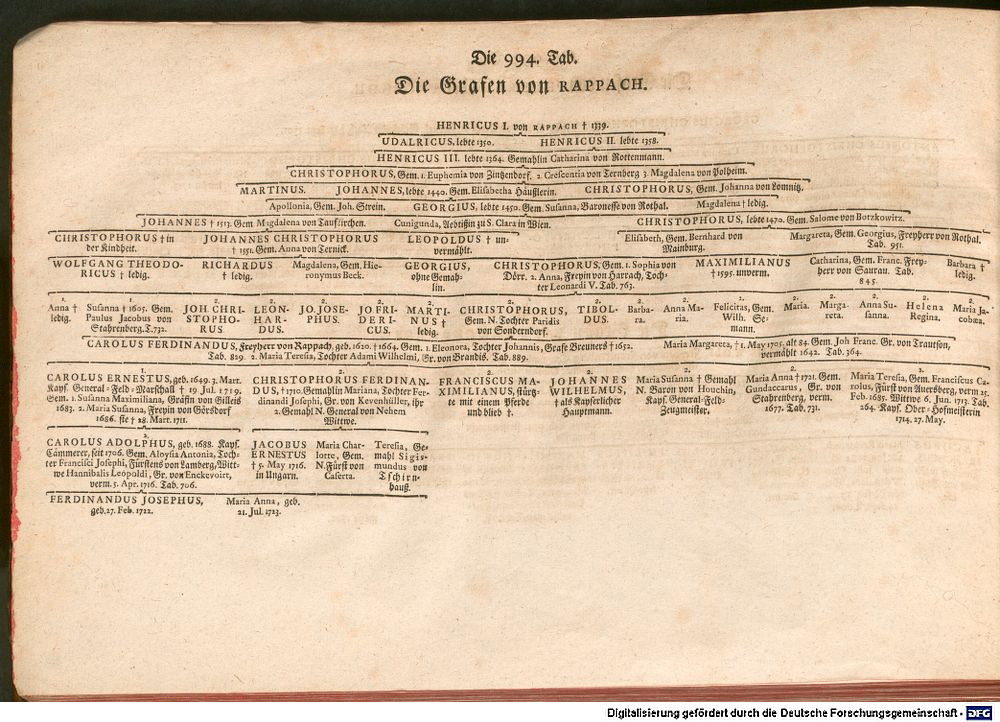 Die 994. Tab.
Die Grafen von RAPPACH.
HENRICUS I. von RAPPACH † 1339.
UDALRICUS, lebte 1350. HENRICUS II. lebte 1358.
HENRICUS III. lebte 1364. Gemahlin Catharina von Rottenmann.
CHRISTOPHORUS, Gem. 1. Euphemia von Zintzendorf. 2. Crescentia von Ternberg 3. Magdalena von Polheim.
MARTINUS. JOHANNES, lebte 1440. Gem. Elisabetha Häußlerin. CHRISTOPHORUS, Gem. Johanna von Lomnitz.
Apollonia, Gem. Joh. Strein. GEORGIUS, lebte 1450. Gem. Susanna, Baronesse von Rothal. Magdalena † ledig.
JOHANNES † 1513. Gem Magdalena von Taufkirchen. Cunigunda, Aebtißin zu S. Clara in Wien. CHRISTOPHORUS, lebte 1470. Gem. Salome von Botzkowitz.
CHRISTOPHORUS † in
der Kindheit.
JOHANNES CHRISTOPHORUS
† 1551. Gem. Anna von Ternick.
LEOPOLDUS † un-
vermählt.
Elisabeth, Gem. Bernhard von
Mainburg.
Margareta, Gem. Georgius, Freyherr von Rothal.
Tab. 951.
WOLFGANG THEODO-
RICUS † ledig.
RICHARDUS
† ledig.
Magdalena, Gem. Hie-
ronymus Beck.
GEORGIUS,
ohne Gemah-
lin.
CHRISTOPHORUS, Gem. 1. Sophia von
Dörr. 2. Anna, Freyin von Harrach, Toch-
ter Leonardi V. Tab. 763.
MAXIMILIANUS
† 1595. unverm.
Catharina, Gem. Franc. Frey-
herr von Saurau. Tab.
845.
Barbara †
ledig.
1.
Anna †
ledig.
1.
Susanna † 1605. Gem.
Paulus Jacobus von
Stahrenberg. T. 732.
2.
JOH. CHRI-
STOPHO-
RUS
2.
LEON-
HAR-
DUS.
2.
JO. JOSE-
PHUS.
2.
JO. FRI-
DERI-
CUS.
2.
MARTI-
NUS †
ledig.
2.
CHRISTOPHORUS,
Gem. N. Tochter Paridis
von Sonderndorf.
2.
TIBOL-
DUS.
2.
Barba-
ra.
2.
Anna Ma-
ria.
2.
Felicitas, Gem.
Wilh. Se-
mann.
2.
Maria.
2.
Marga-
reta.
2.
Anna Su-
sanna.
2.
Helena
Regina.
2.
Maria Ja-
cobæa.
CAROLUS FERDINANDUS, Freyherr von Rappach, geb. 1620. † 1664. Gem. 1. Eleonora, Tochter Johannis, Grafe Breuners † 1652.
Tab. 829. 2. Maria Teresa, Tochter Adami Wilhelmi, Gr. von Brandis. Tab. 889.
Maria Margareta, † 1. May 1705, alt 84. Gem. Joh Franc. Gr. von Trautson,
vermählt 1642. Tab. 364.
1.
CAROLUS ERNESTUS, geb. 1649. 3. Mart.
Kays. General-Feld-Marschall † 19 Jul. 1719.
Gem. 1. Susanna Maximiliana, Gräfin von Gilleis
1683. 2. Maria Susanna, Freyin von Görsdorf
1686. sie † 28. Mart. 1711.
2.
CHRISTOPHORUS FERDINAN-
DUS, † 1710. Gemahlin Mariana, Tochter Fer-
dinandi Josephi, Gr. von Kevenhüller, ihr
2. Gemahl N. General von Nehem
Wittwe.
2.
FRANCISCUS MA-
XIMILIANUS, stürg-
te mit einem Pferde
und blieb †.
2.
JOHANNES
WILHELMUS,
† als Kayserlicher
Hauptmann.
2.
Maria Susanna † Gemahl
N. Baron von Houchin,
Kays. General-Feld-
Zeugmeister.
2.
Maria Anna † 1721. Gem.
Gundaccarus, Gr. von
Stahrenberg, verm.
1677. Tab. 731.
2.
Maria Teresa, Gem. Franciscus Ca-
rolus, Fürst von Auersberg, verm 25.
Feb. 1685. Wittwe 6. Jun. 1713. Tab.
264. Kays. Ober-Hofmeisterin
1714. 27. May.
2.
CAROLUS ADOLPHUS, geb. 1688. Kays.
Cämmerer, seit 1706. Gem. Aloysia Antonia, Toch-
ter Francisci Josephi, Fürstens von Lamberg, Witt-
we Hannibalis Leopoldi, Gr. von Enckevoirt,
verm. 5. Apr. 1716. Tab. 706.
JACOBUS
ERNESTUS
† 5. May 1716.
in Ungarn.
Maria Char-
lotte, Gem.
N. Fürst von
Caserta.
Teresia, Ge-
mahl Sigis-
mundus von
Tschirn-
hauß.
FERDINANDUS JOSEPHUS,
geb. 27. Feb. 1722.
Maria Anna, geb.
21. Jul. 1723.
Digitalisierung gefördert durch die Deutsche Forschungsgemeinschaft - DFG